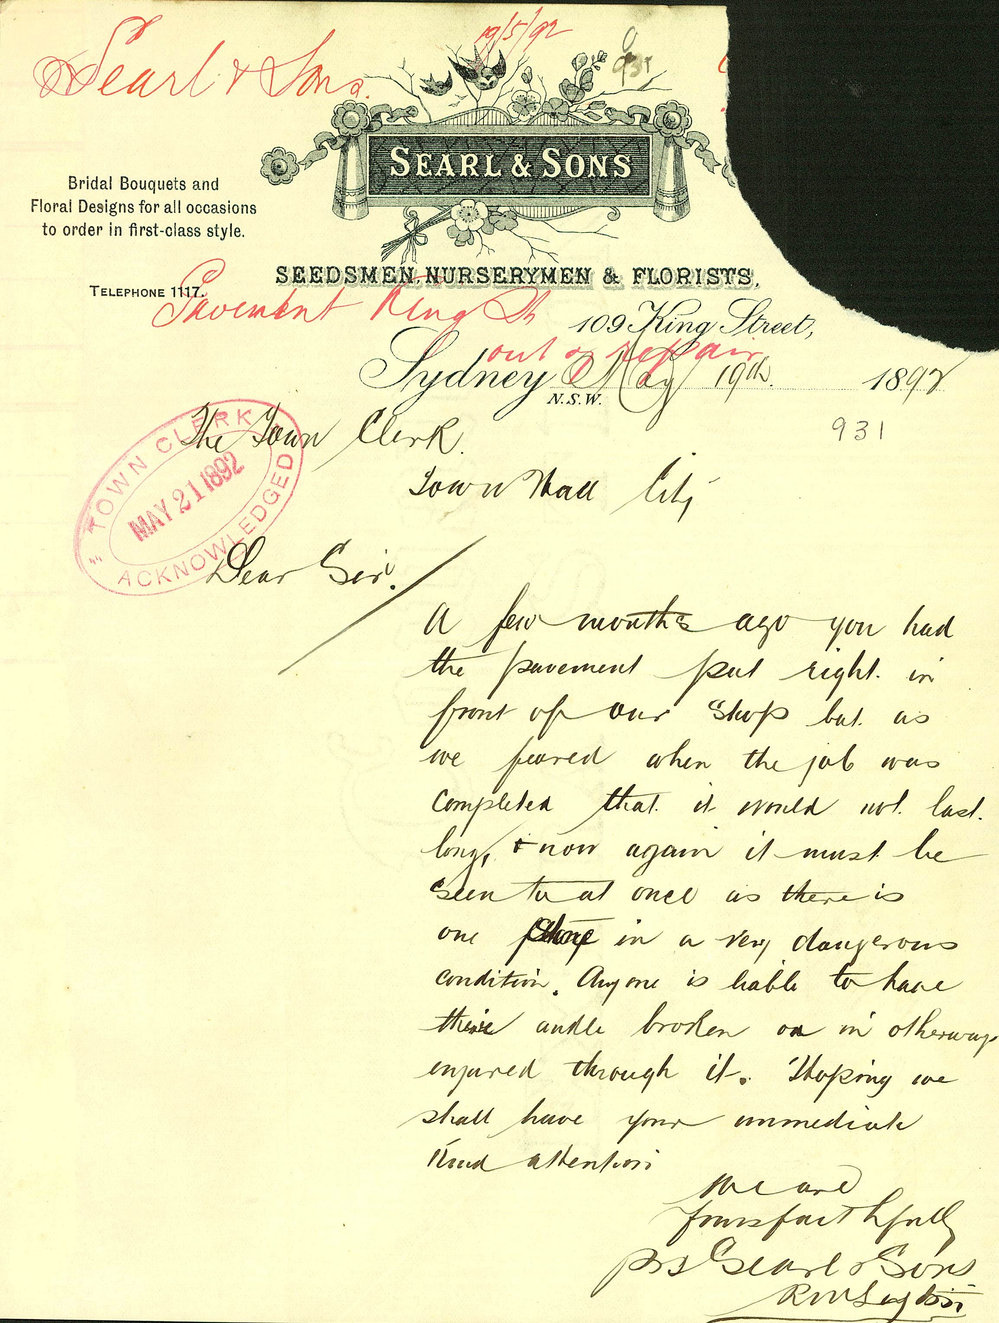 Searl & Sons.
19/5/92
931
SEARL & SONS
Bridal Bouquets and
Floral Designs for all occasions
to order in first-class style.
SEEDSMEN, NURSERYMEN & FLORISTS,
TELEPHONE 1117.
Pavement King St
out of repair
109 King Street,
Sydney May 19th 1892
N.S.W.
931
TOWN CLERK
MAY 21 1892
ACKNOWLEDGED
The Town Clerk
Town Hall City
Dear Sir.
A few months ago you had
the pavement put right in
front of our Shop but as
we feared when the job was
completed that it would not last
long, & now again it must be
seen to at once as there is
one in a very dangerous
condition. Anyone is liable to have
their ankle broken or in otherways
injured through it. Hoping we
shall have your immediate
kind attention
We are
Yours faithfully
Searl & Sons